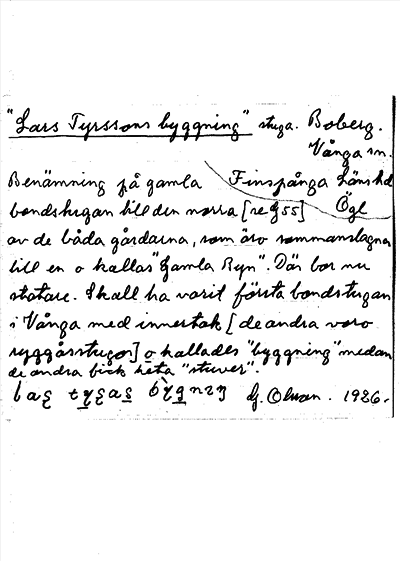 "Lars Tyrssons byggning" stuga. Boberg.
Vånga sn.
Benämning på gamla Finspånga Länshd
bondstugan till den norra Ögl
av de båda gårdarna, som äro sammanslagna
till en o kallas "Gamla Byn". Där bor nu
statare. Skall ha varit första bondstugan
i Vånga med innertak [de andra voro
ryggåsstugor] o kallades "byggning" medan
de andra fick heta "stuver".
1926.